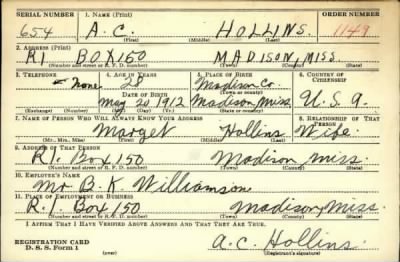 SERIAL NUMBER 1. NAME (Print) ORDER NUMBER
654 A. C. HOLLINS. 1149
(First) (Middle) (Last)
2. ADDRESS (Print)
R1 BOX 150 MADISON, MISS
(Number and street or R. F. D. number) (Town) (County) (State)
3. TELEPHONE 4. AGE IN YEARS 5. PLACE OF BIRTH 6. COUNTRY OF CITIZENSHIP
None 28 Madison Co.
DATE OF BIRTH
May 20 1912 Madison Miss. U. S. a.
(Exchange) (Number) (Mo.) (Day) (Yr.) (Town or county) (State or country)
7. NAME OF PERSON WHO WILL ALWAYS KNOW YOUR ADDRESS 8. RELATIONSHIP OF THAT PERSON
Marget Hollins Wife
(Mr., Mrs., Miss) (First) (Middle) (Last)
9. ADDRESS OF THAT PERSON
R1. Box 150 Madison miss.
(Number and street or R. F. D. number) (Town) (County) (State)
10. EMPLOYER'S NAME
Mr B. K. Williamson
11. PLACE OF EMPLOYMENT OR BUSINESS
R. 1. BOX 150 Madison, Miss.
(Number and street or R. F. D. number) (Town) (County) (State)
I AFFIRM THAT I HAVE VERIFIED ABOVE ANSWERS AND THAT THEY ARE TRUE.
REGISTRATION CARD a. c. Hollins.
D. S. S. Form 1 (Registrant's signature)